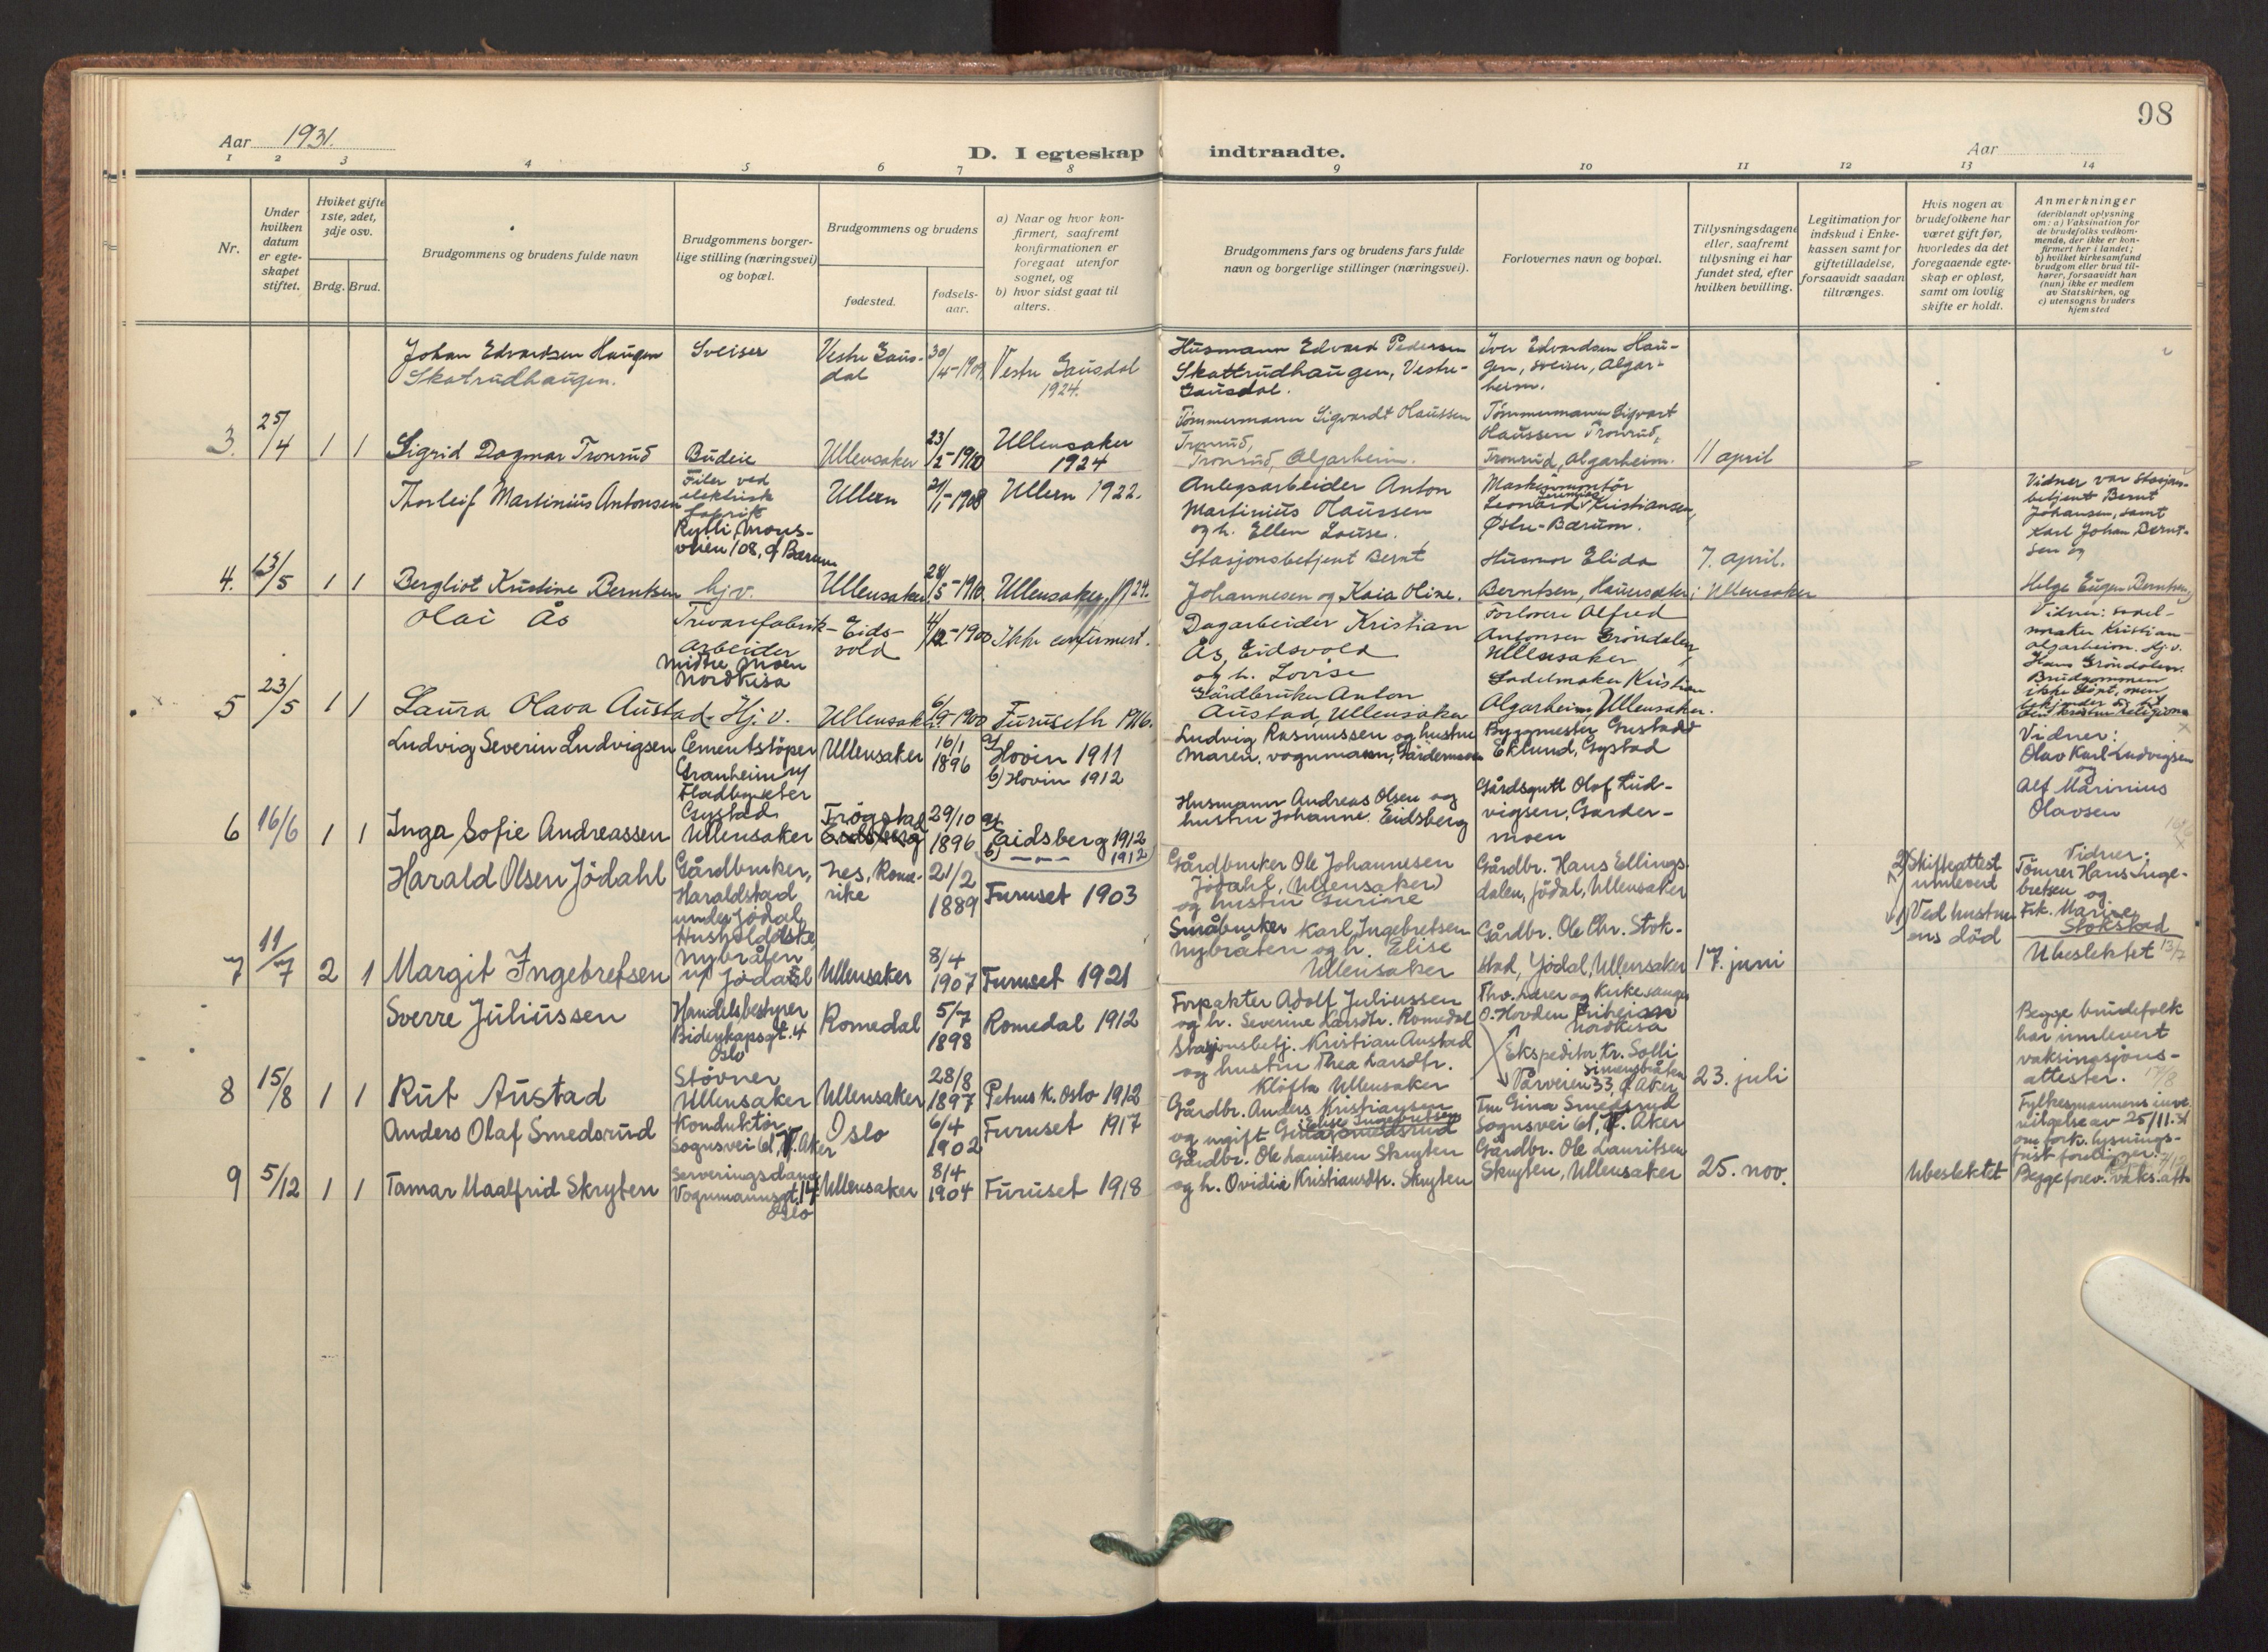 98
Aar 1931.
D. I egteskap indtraadte.
Aar
1 2 3 4 5 6 7 8 9 10 11 12 13 14
Nr.
Under hvilken datum er egte-skapet stiftet.
Hviket gifte 1ste, 2det, 3dje osv.
Brdg. Brud.
Brudgommens og brudens fulde navn
Brudgommens borger-lige stilling (næringsvei) og bopæl.
Brudgommens og brudens
fødested.
fødsels-aar.
a) Naar og hvor kon-firmert, saafremt konfirmationen er foregaat utenfor sognet, og
b) hvor sidst gaat til alters.
Brudgommens fars og brudens fars fulde navn og borgerlige stillinger (næringsvei).
Forlovernes navn og bopæl.
Tillysningsdagene eller, saafremt tillysning ei har fundet sted, efter hvilken bevilling.
Legitimation for indskud i Enke-kassen samt for giftetilladelse, forsaavidt saadan tiltrænges.
Hvis nogen av brudefolkene har været gift før, hvorledes da det foregaaende egte-skap er opløst, samt om lovlig skifte er holdt.
Anmerkninger
(deriblandt oplysning om: a) Vaksination for de brudefolks vedkom-mende, der ikke er kon-firmert her i landet; b) hvilket kirkesamfund brudgom eller brud til-hører, forsaavidt han (hun) ikke er medlem av Statskirken, og c) utensogns bruders hjemsted
Johan Edvardsen Haugen
Skatrudhaugen.
Sveiser
Vestre Gaus-
dal
30/4-1909
Vestre Gausdal
1924.
Husmann Edvard Pedersen
Skattrudhaugen, Vestre-
Gausdal.
Iver Edvardsen Hau-
gen, sveiser, Algar-
heim.
3. 25/4 1 1
Sigrid Dagmar Tronrud
Budeie
Ullensaker
23/2-1910
Ullensaker
1924
Tømmermann Sigvardt Olaussen
Tronrud,
Tronrud, Algarheim.
Tømmermann Sigvart
Olaussen Tronrud,
Tronrud, Algarheim.
11 april
Thorleif Martinius Antonsen
Filer ved
elektrisk
fabrik
Ullern
21/1-1908
Ullern 1922.
Anlegsarbeider Anton
Martinius Olaussen
og h. Ellen Louise.
Maskinmontør
Leonard Kristiansen,
Østre-Bærum.
Vidner var Stasjons-
betjent Bernt
Johansen, samt
Karl Johan Bernt-
sen og
Helge Eugen Berntsen
4. 13/5 1 1
Bergliot Kristine Berntsen
hj.v.
Ullensaker
28/5-1910
Ullensaker, 1924.
Stasjonsbetjent Bernt
Johannesen og Kaia Oline.
Husmor Elida
Berntsen, Hauersæter
7. april.
i Ullensaker
Olai Ås
Trevarefabrik-
arbeider
Midtre Moen
Nordkisa
Eids-
vold
4/12-1900
Ikke confirmert.
Dagarbeider Kristian
Ås, Eidsvold
og h. Lovise
Forlovere Alfred
Antonsen Grøndalen
Ullensaker
Vidner: sadel-
maker Kristian
Algarheim. Hj.v.
Hans Grøndalen.
Brudgommen
ikke døpt, men
bekjender sig til
den kristne religion
5 23/5 1 1
Laura Olava Austad
Hj.v.
Ullensak.
6/9-1900
Furuseth 1916.
Gårdbruker Anton
Austad, Ullensaker
Sadelmaker Kristian
Algarheim, Ullensaker.
Ludvig Severin Ludvigsen
Cementstøper
Granheim u/
Fladbyseter
Gystad
Ullensaker
16/1
1896
a) Hovin 1911
b) Hovin 1912
Ludvig Rasmussen og hustru
Maren, vognmann, Gardermoen
Byggmester Gustadd
Eklund, Gystad
Vidner:
Olav Karl Ludvigsen
og
Alf Marinius
Olavsen
6 16/6 1 1
Inga Sofie Andreassen
Ullensaker
Trøgstad
Eidsberg
29/10
1896
a) Eidsberg 1912
b) — — — 1912
Husmann Andreas Olsen og
hustru Johanne. Eidsberg
Gårdsgutt Olof Lud-
vigsen, Garder-
moen
Harald Olsen Jødahl
Gårdbruker,
Haraldstad
under Jødal
Nes, Rome-
rike
21/2
1889
Furuset 1903
Gårdbruker Ole Johannesen
Jødahl, (Ullensaker)
og hustru Gurine
Gårdbr. Hans Ellings-
dalen, Jødal, Ullensaker
2) Skifteattest
innleverd
1) Ved hustru-
ens død
Vidner:
Tømrer Hans Inge-
bretsen og
Frk. Marine
Stokstad
Ubeslektet 13/7
7 11/7 2 1
Margit Ingebretsen
Nybråten
u/ Jødahl
Ullensaker
8/4
1907
Furuset 1921
Småbruker Karl Ingebretsen
Nybråten og h. Elise
Ullensaker
Gårdbr. Ole Chr. Stok-
stad, Jødal, Ullensaker
17. juni
Sverre Juliussen
Handelsbestyrer
Bidenkapsgt. 4
Oslo
Romedal
5/7
1898
Romedal 1912
Forpakter Adolf Juliussen
og h. Severine Larsdtr. Romedal
Thv. lærer og kirkesanger
O. Hovden
Nordkisa
Begge brudefolk
har innlevert
vaksinasjons-
attester. 17/8
8 15/8 1 1
Rut Austad
Støvner
Ullensaker
Ullensaker
28/8
1897
Petrus K. Oslo 1912
Stasjonsbetj. Kristian Austad
og hustru Thea Larsdtr.
Kløfta Ullensaker
Ekspeditør Kr. Solli
Simensbråten
Vårveien 33, Ø. Aker
23. juli
Anders Olaf Smedsrud
Konduktør.
Sognsvei 61, V. Aker
Oslo
6/4
1902
Furuset 1917
Gårdbr. Anders Kristiansen
og ugift Elise Ingebretsen
Fru Gina Smedsrud
Sognsvei 61, V. Aker
Fylkesmannens inn-
vilgelse av 25/11.31
om fork. lysnings-
frist foreligger.
9 5/12 1 1
Tamar Maalfrid Skryten
Serveringsdame
Vognmannsgt. 14
Oslo
Ullensaker
8/4
1904
Furuset 1918
Gårdbr. Ole Lauritsen Skryten
og h. Ovidia Kristiansdtr. Skryten
Gårdbr. Ole Lauritsen
Skryten, Ullensaker
25. nov.
Ubeslektet
Begge forev. vaks.att.